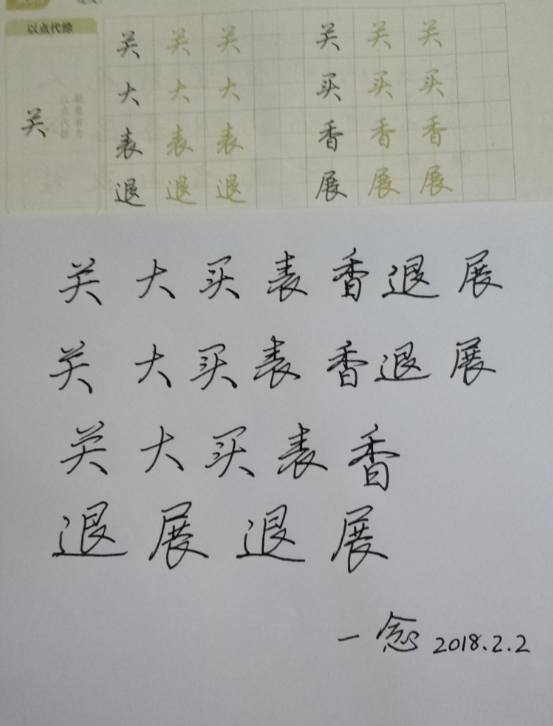 以点代捺
关 关 关 关 关 关
大 大 大 买 买 买
关
表 表 表 香 香 香
退 退 退 展 展 展
关 大 买 表 香 退 展
关 大 买 表 香 退 展
关 大 买 表 香
退 展 退 展
一念 2018.2.2